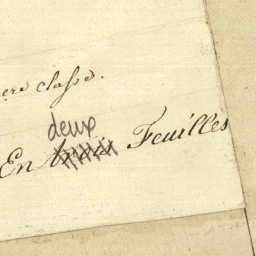 ere classe.
deux
En trois Feuilles